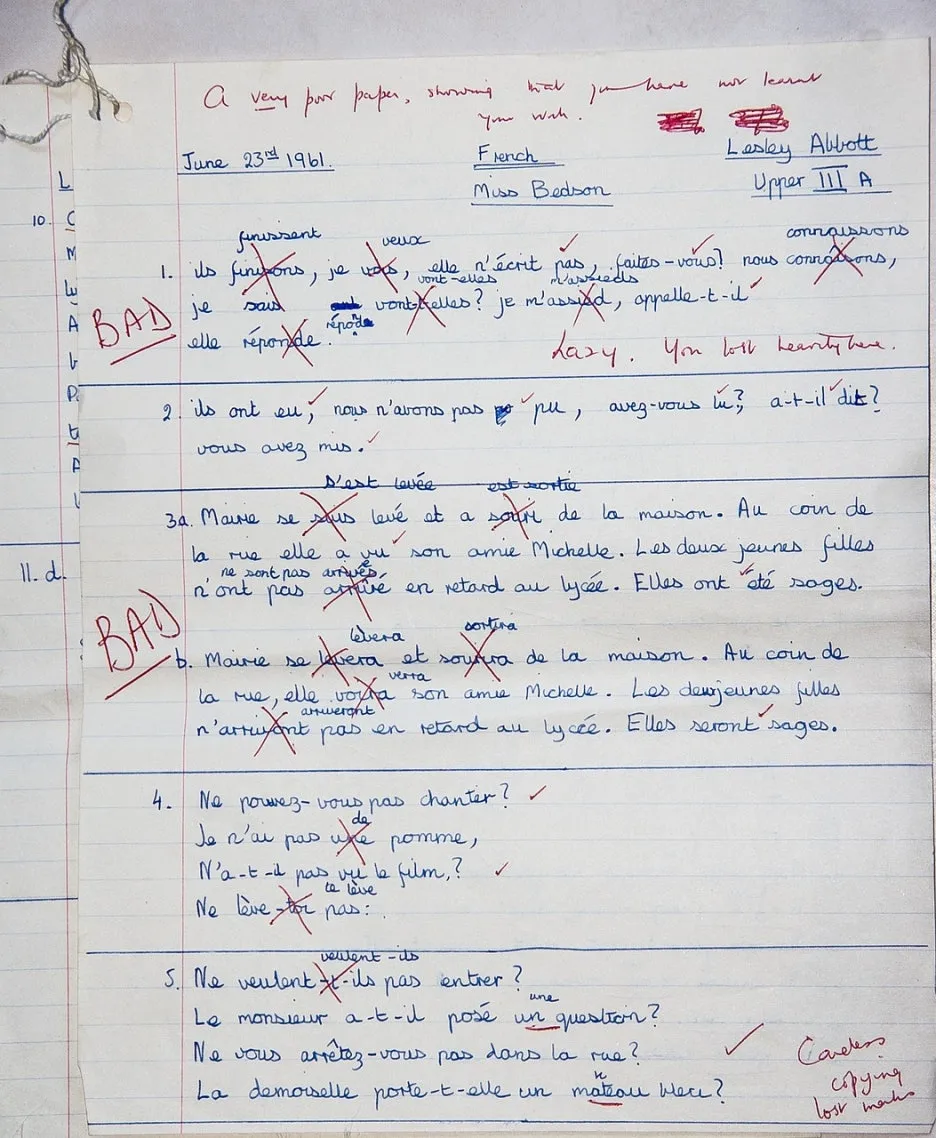 A very poor paper, showing that you have not learnt
your work.
June 23rd 1961. French Lesley Abbott
Miss Bedson Upper III A
finissent veux connaissons
1. ils finissons, je vous, elle n'écrit pas, faites-vous? nous connaisons,
vont-elles m'assieds
je sais vont-t-elles? je m'assied, appelle-t-il
BAD
répond
elle réponde.
Lazy. You lost heavily here.
2. ils ont eu, nous n'avons pas pu, avez-vous lu? a-t-il dit?
vous avez mis.
s'est levée est sortie
3a. Mairie se levé et a de la maison. Au coin de
la rue elle a vu son amie Michelle. Les deux jeunes filles
ne sont pas arrivés
n'ont pas arrivé en retard au lycée. Elles ont été sages.
BAD
lèvera sortira
b. Mairie se levera et de la maison. Au coin de
verra
la rue, elle voira son amie Michelle. Les deuxjeunes filles
arriveront
n'arrivont pas en retard au lycée. Elles seront sages.
4. Ne pouvez-vous pas chanter?
de
Je n'ai pas une pomme,
N'a-t-il pas vu le film,?
te lève
Ne lève-toi pas:
veulent-ils
5. Ne veulent-t-ils pas entrer?
une
Le monsieur a-t-il posé un question?
Ne vous arrêtez-vous pas dans la rue?
n
La demoiselle porte-t-elle un mateau bleu?
Careless
copying
lost marks
L
10. C
M
A
P
A
11. d.